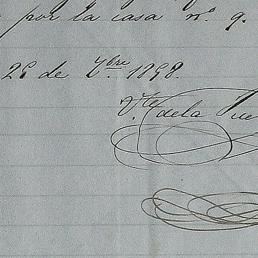 por la casa nº. 9.
29 de 7bre. 1898.
Vte. de la Pue